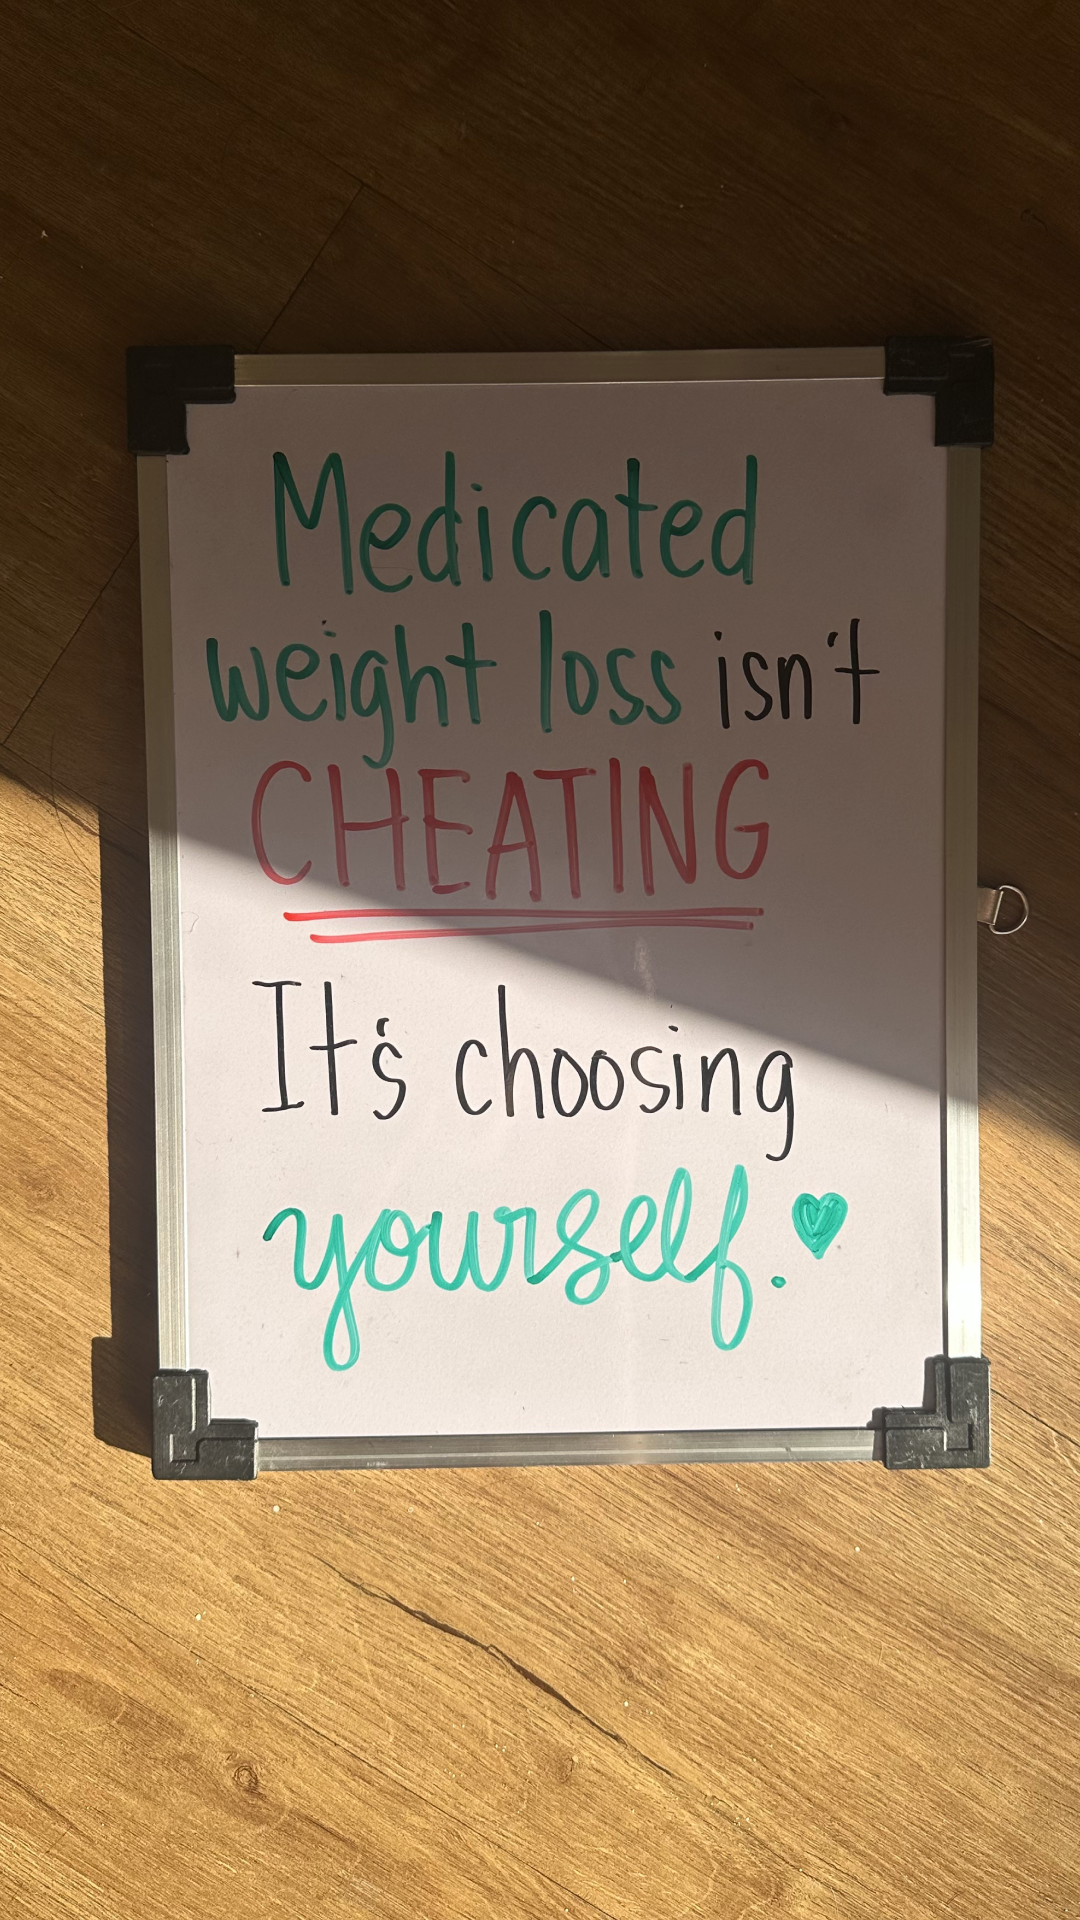 Medicated
weight loss isn't
CHEATING
It's choosing
yourself.